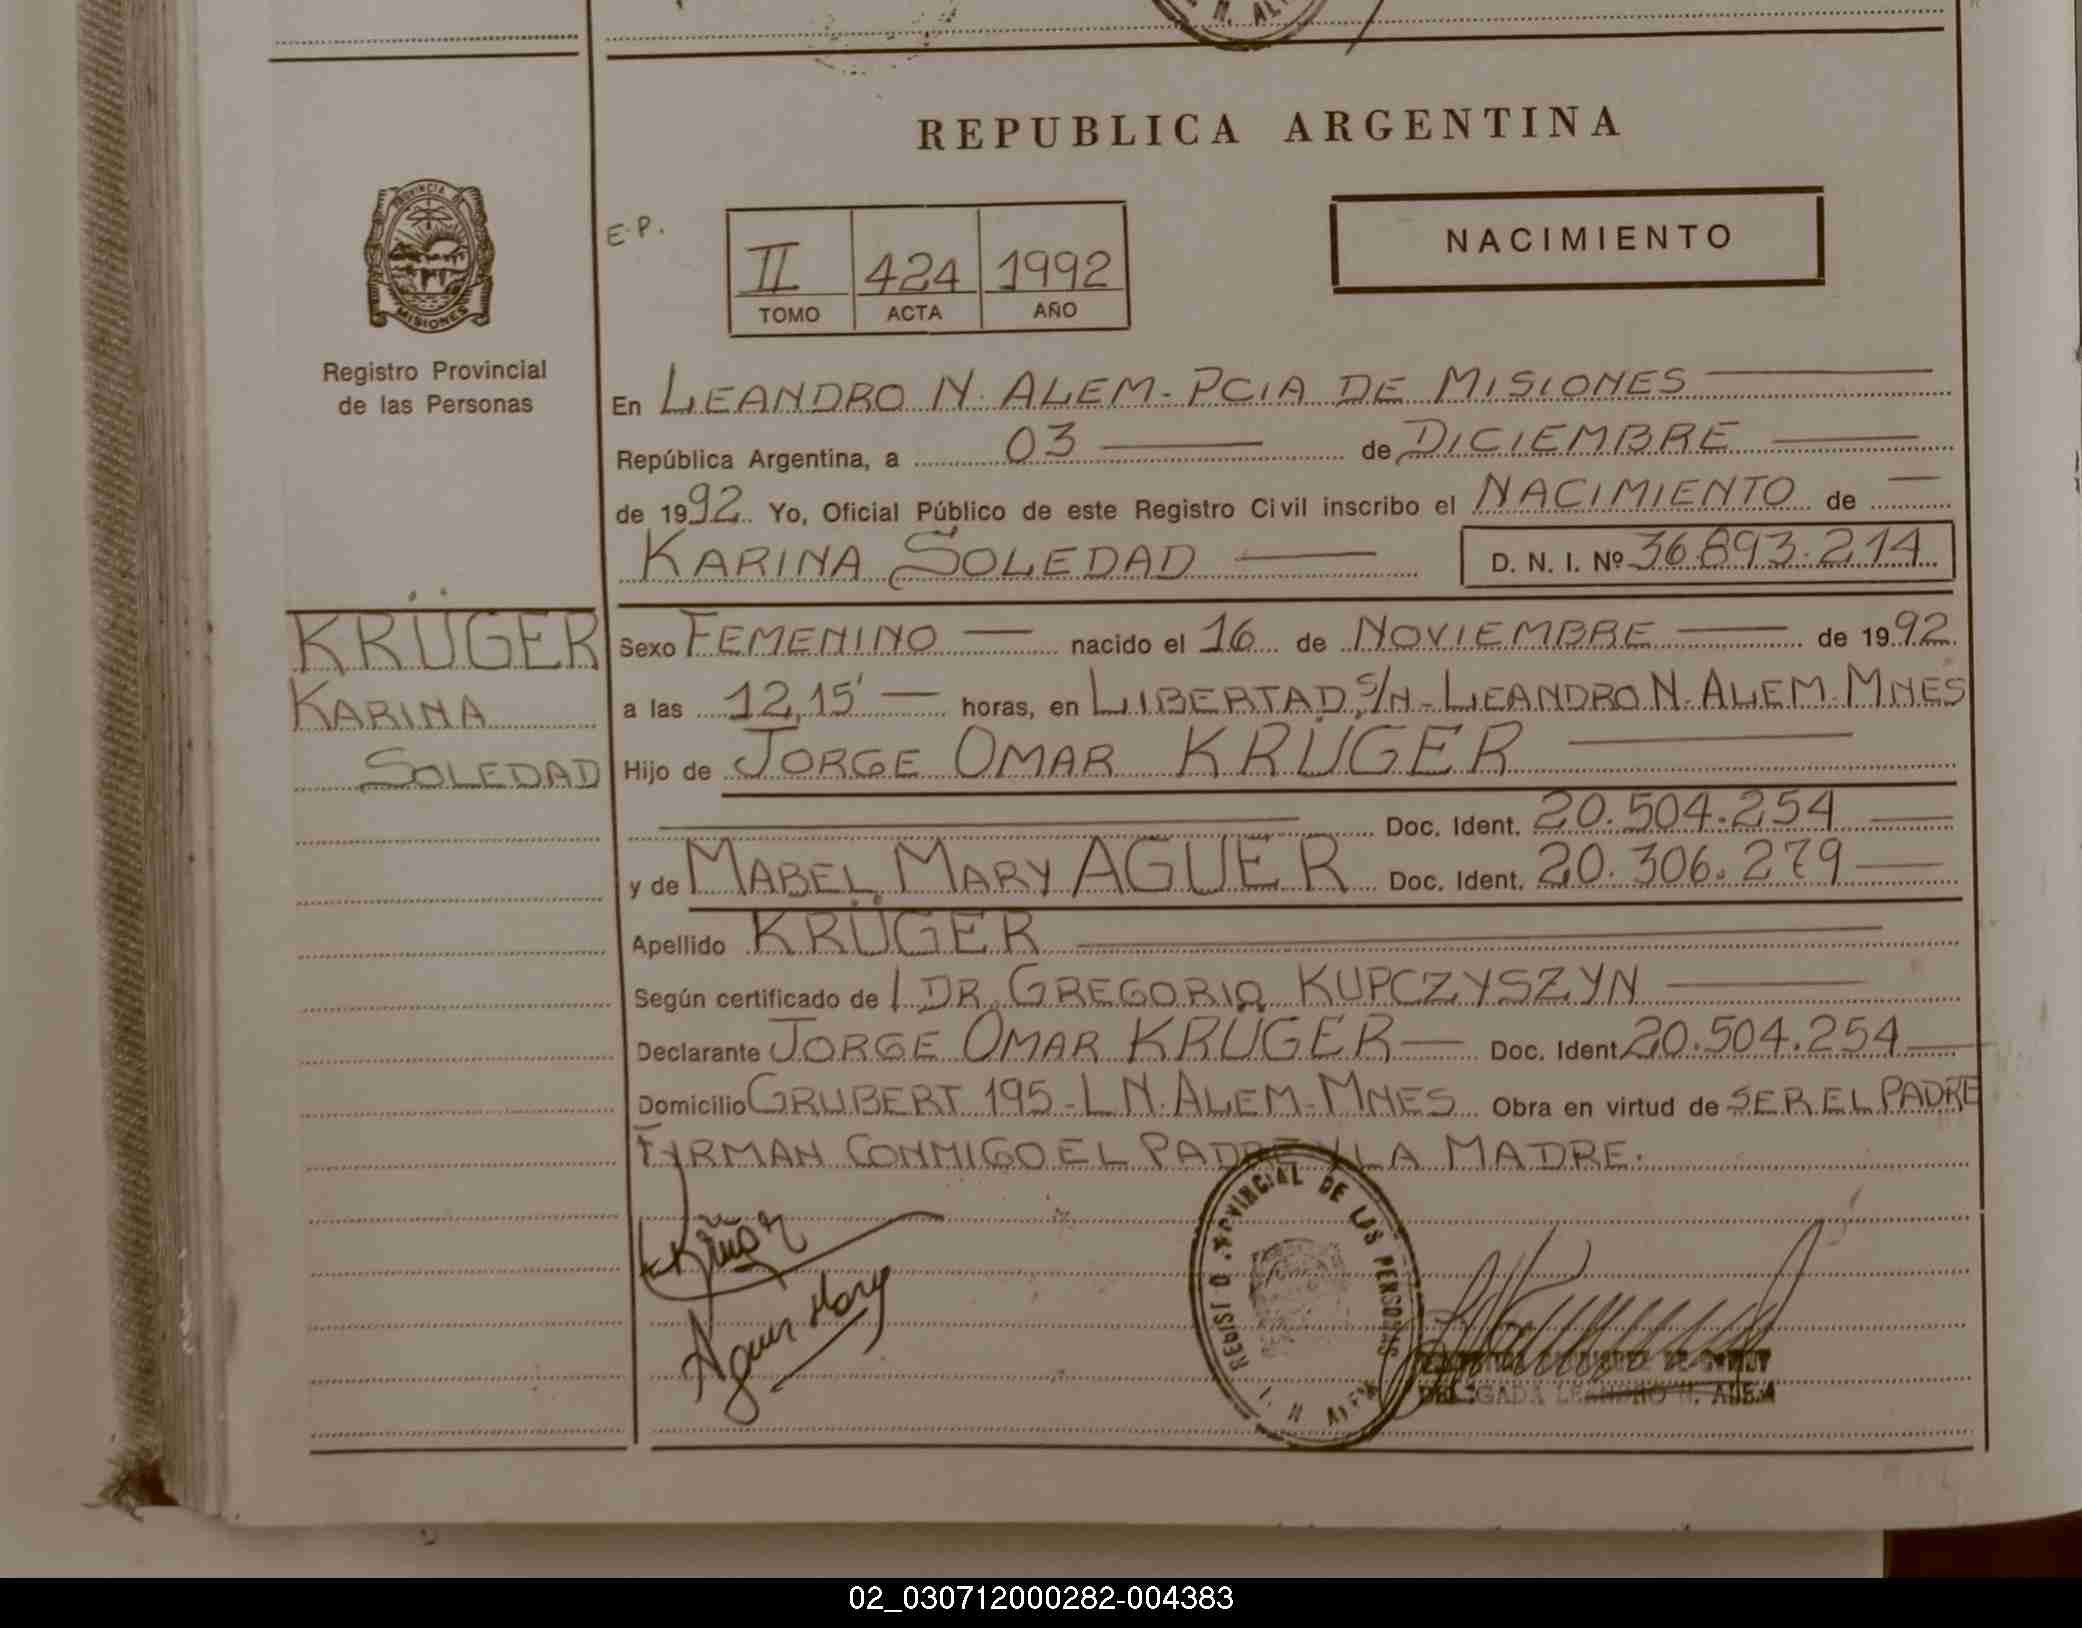 REPUBLICA ARGENTINA
PROVINCIA DE
MISIONES
Registro Provincial
de las Personas
E.P.
II 424 1992
TOMO ACTA AÑO
NACIMIENTO
En LEANDRO N. ALEM - PCIA DE MISIONES
República Argentina, a 03 de DICIEMBRE
de 1992. Yo, Oficial Público de este Registro Civil inscribo el NACIMIENTO de
KARINA SOLEDAD D. N. I. Nº 36.893.214
KRÜGER
KARINA
SOLEDAD
Sexo FEMENINO nacido el 16 de NOVIEMBRE de 1992.
a las 12,15' horas, en LIBERTAD, S/N - LEANDRO N. ALEM. MNES
Hijo de JORGE OMAR KRÜGER
Doc. Ident. 20.504.254
y de MABEL MARY AGUER Doc. Ident. 20.306.279
Apellido KRÜGER
Según certificado de DR. GREGORIO KUPCZYSZYN
Declarante JORGE OMAR KRÜGER Doc. Ident. 20.504.254
Domicilio GRUBERT 195 - L.N. ALEM - MNES Obra en virtud de SER EL PADRE
FIRMAN CONMIGO EL PADRE Y LA MADRE.
Aguer Mary
PROVINCIAL DE LAS PERSONAS
L. N. ALEM
LEANDRO N. ALEM
02_030712000282-004383